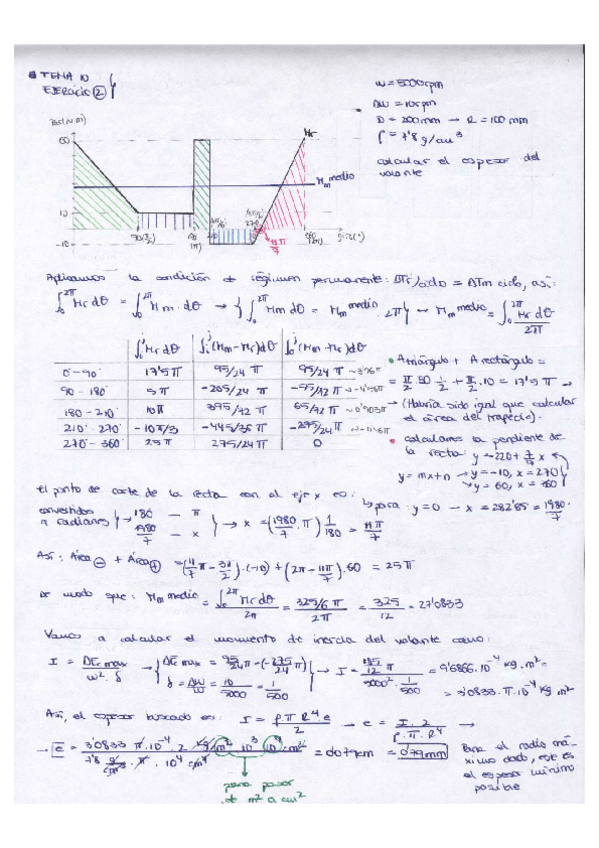 TEMA 10
EJERCICIO 2
W = 5000 rpm
ΔW = 10 rpm
D = 200 mm → R = 100 mm
ρ = 7'8 g/cm³
calcular el espesor del
volante
Par (N·m)
60
Mr
Mm medio
10
-10
90 (π/2)
180 (π)
270
360 (2π)
11π/7
Aplicamos la condición de régimen permanente: ΔTr/ciclo = ΔTm ciclo, así:
∫₀^2π Mr dθ = ∫₀^2π Mm · dθ → { ∫₀^2π Mm dθ = Mm medio · 2π } → Mm medio = ∫₀^2π Mr dθ / 2π
∫ᵢʲ Mr dθ | ∫ᵢʲ (Mm - Mr) dθ | ∫₀ʲ (Mm - Mr) dθ
0 - 90 | 17'5 π | 95/24 π | 95/24 π ~ 3'96π
90 - 180 | 5π | -205/24 π | -55/12 π ~ -4'58π
180 - 210 | 10π | 395/72 π | 65/72 π ~ 0'903π
210 - 270 | -10π/3 | -445/36 π | -275/24 π ~ -11'46π
270 - 360 | 25π | 275/24 π | 0
A triángulo + A rectángulo =
= π/2 · 50 · 1/2 + π/2 · 10 = 17'5 π →
→ (Habría sido igual que calcular
el área del trapecio).
calculamos la pendiente de
la recta: y = -220 + 7/9 x
y = mx + n → y = -10, x = 270
→ y = 60, x = 360
para: y = 0 - x = 282'85 = 1980/7
El punto de corte de la recta con el eje x es:
convertidos
a radianes } → 180 — π
1980/7 — x } → x = (1980/7 · π) 1/180 = 11π/7
Así: Área ⊖ + Área ⊕ = (11/7 π - 3π/2) · (-10) + (2π - 11π/7) · 60 = 25π
de modo que: Mm medio = ∫₀^2π Mr dθ / 2π = 325/6 π / 2π = 325/12 = 27'0833
Vamos a calcular el momento de inercia del volante como:
I = ΔEc max / W² · δ → { ΔEc max = 95/24 π - (-275/24 π)
δ = ΔW/W = 10/5000 = 1/500 } → I = 185/12 π / 5000² · 1/500 = 9'6866 · 10⁻⁴ kg · m² =
= 3'0833 · π · 10⁻⁴ kg · m²
Así, el espesor buscado es: I = ρ · π · R⁴ · e / 2 → e = I · 2 / ρ · π · R⁴ →
→ e = 3'0833 π · 10⁻⁴ · 2 kg/m² 10³ 10⁴ cm² / 7'8 g/cm³ · π · 10⁴ cm⁴ = 0'079 cm = 0'79 mm
para pasar
de m² a cm²
Para el radio má-
ximo dado, este es
el espesor mínimo
posible